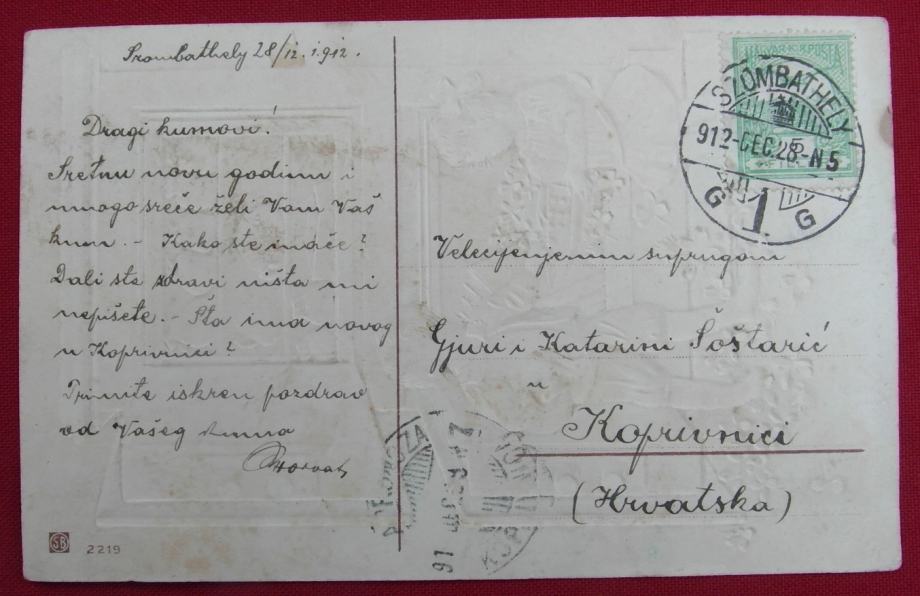 Szombathely 28/12. 1912.
Dragi kumovi!
Sretnu novu godinu i
mnogo sreće želi Vam Vaš
kum. - Kako ste inače?
Dali ste zdravi ništa mi
nepišete. - Šta ima novog
u Koprivnici?
Primite iskren pozdrav
od Vašeg kuma
Horvat
SB 2219
MAGYAR KIR. POSTA
SZOMBATHELY
912-DEC.28-N5
G 1 G
Velecijenjenim suprugom
Gjuri i Katarini Šoštarić
u
Koprivnici
(Hrvatska)